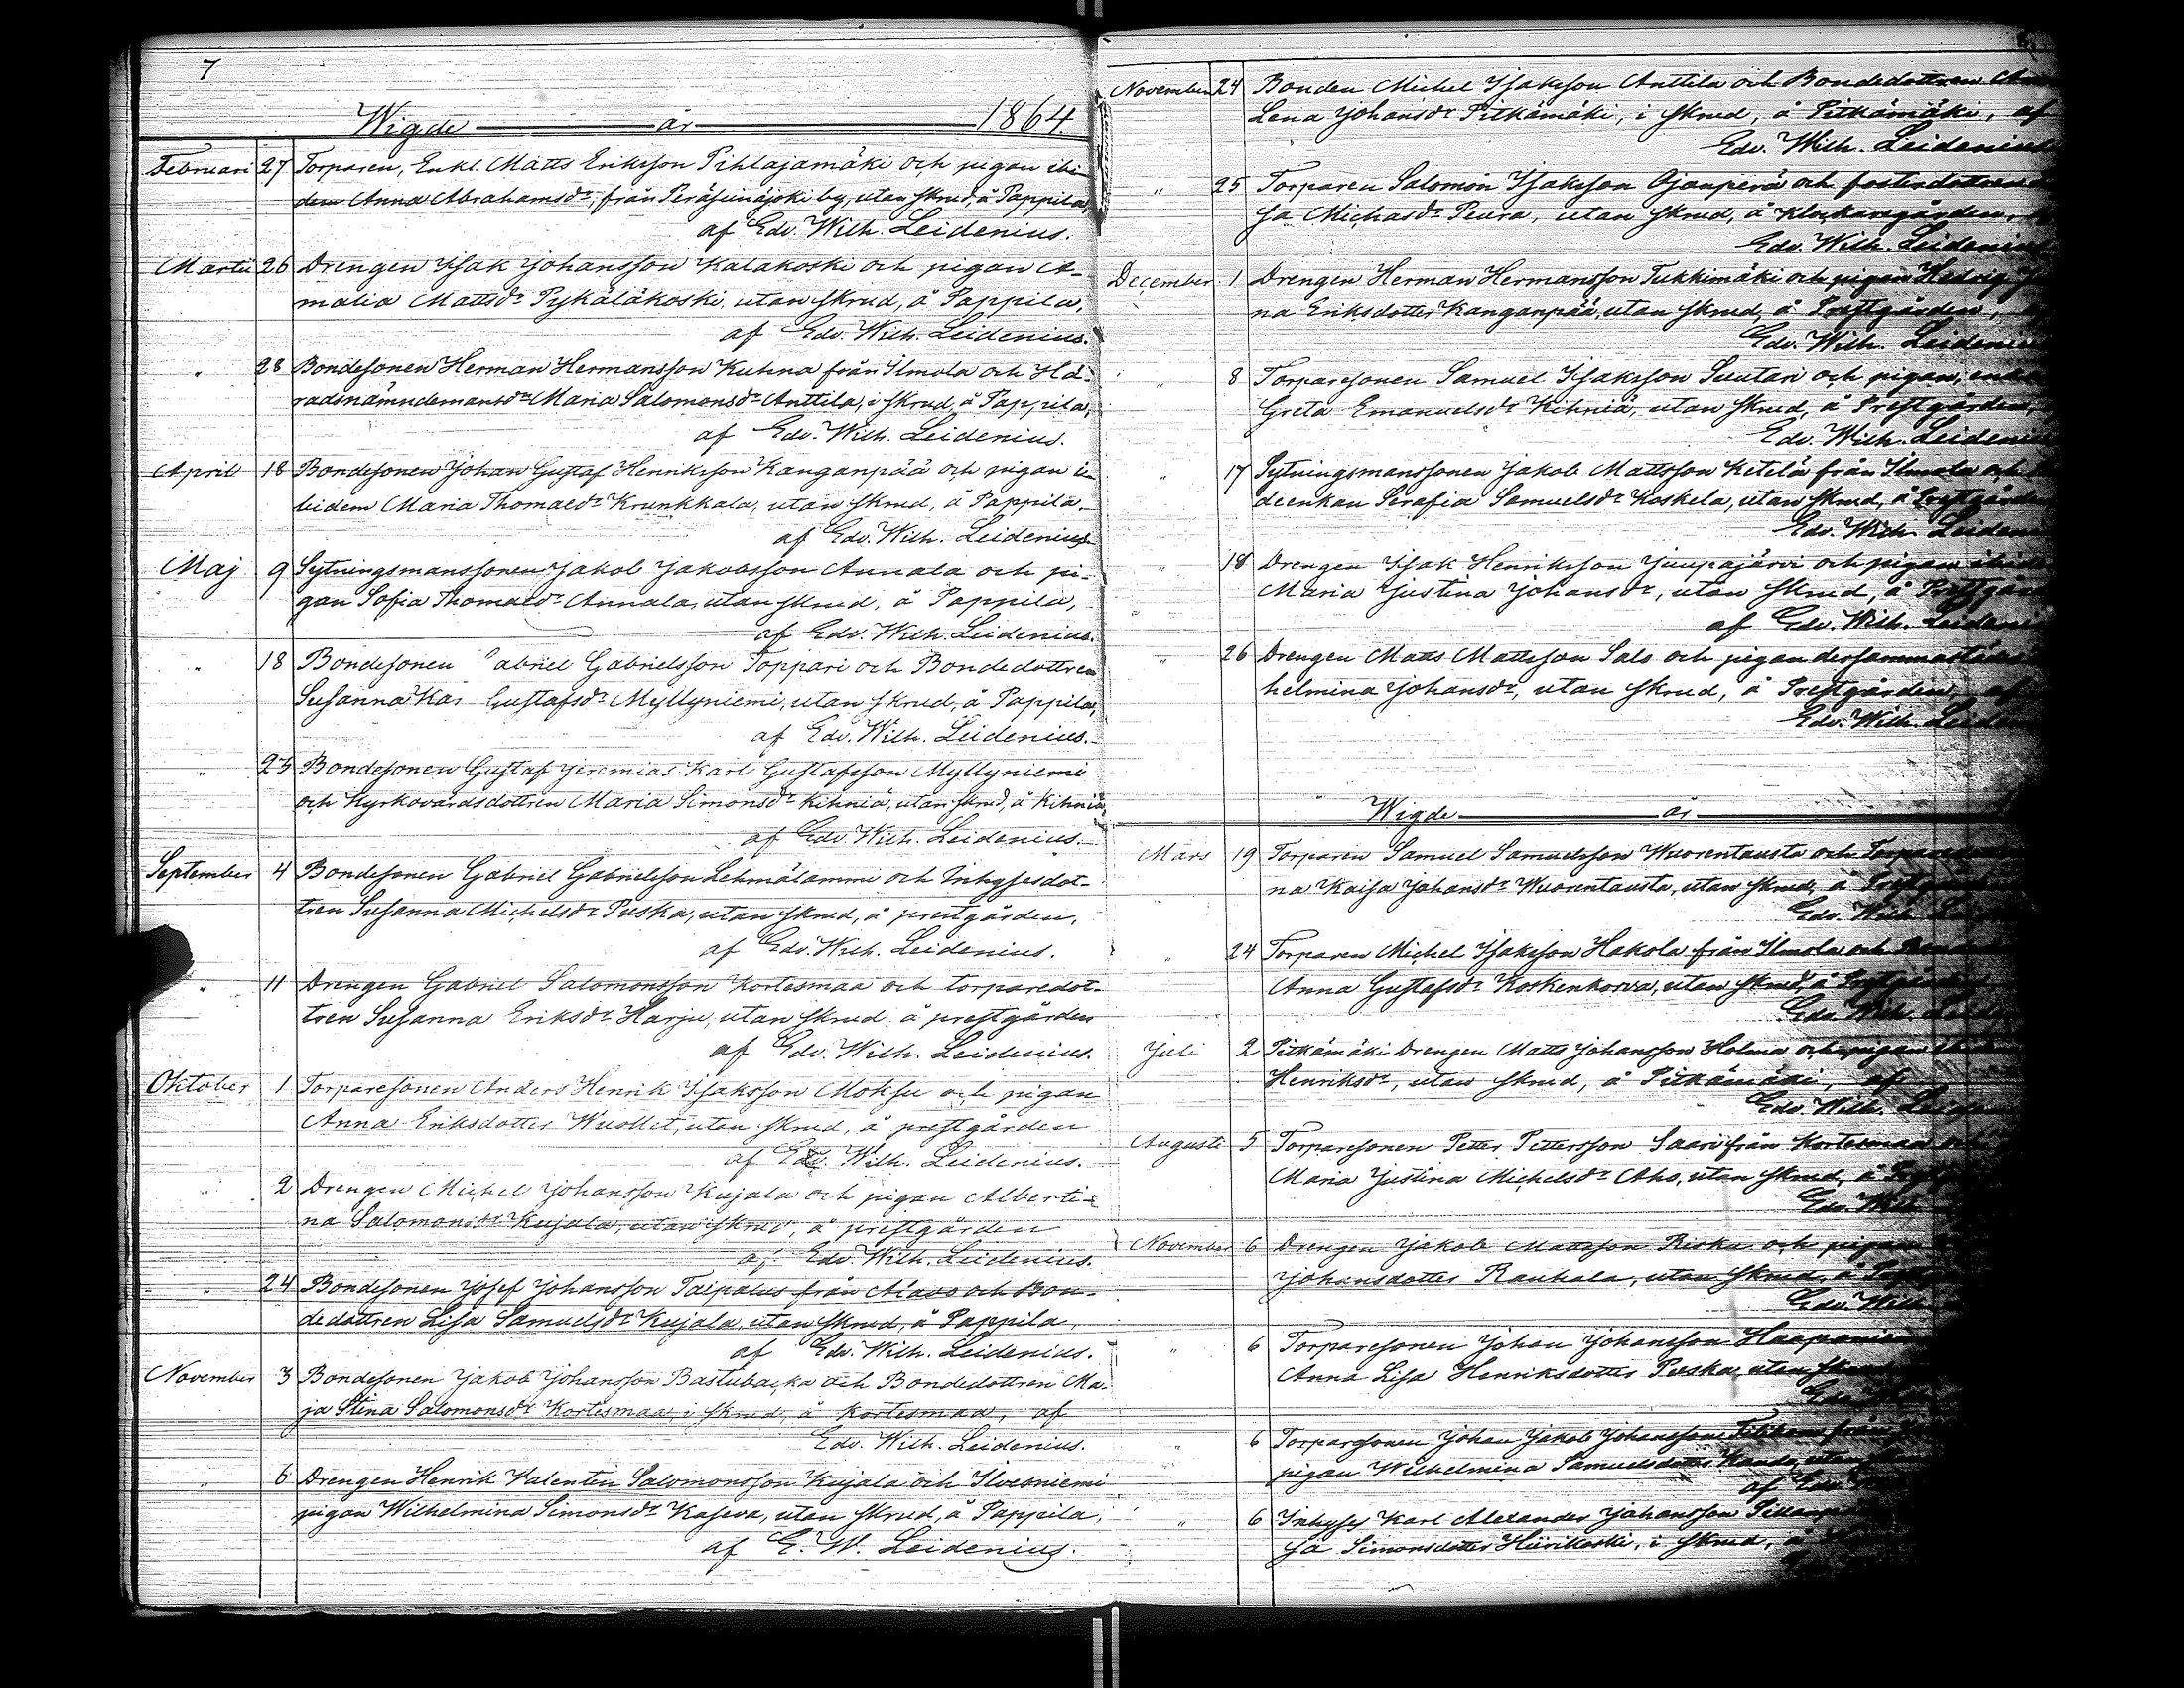 7
Wigde år 1864.
Februari 27 Torparen, Enkl. Matts Eriksson Pihlajamäki och pigan ibi-
dem Anna Abrahamsdr, från Peräseinäjoki by, utan skrud, å Pappila,
af Edv. Wilh. Leidenius.
Martii 26 Drengen Isak Johansson Kalakoski och pigan A-
malia Mattsdr Pykäläkoski, utan skrud, å Pappila,
af Edv. Wilh. Leidenius.
" 28 Bondesonen Herman Hermansson Kuhna från Ilmola och Hä-
radsnämndemansdr Maria Salomonsdr Anttila, i skrud, å Pappila,
af Edv. Wilh. Leidenius.
April 18 Bondesonen Johan Gustaf Henriksson Kanganpää och pigan i-
bidem Maria Thomaedr Krunkkala, utan skrud, å Pappila.
af Edv. Wilh. Leidenius
Maj 9 Sytningsmanssonen Jakob Jakobsson Annala och pi-
gan Sofia Thomaedr Annala, utan skrud, å Pappila,
af Edv. Wilh. Leidenius.
" 18 Bondesonen abriel Gabrielsson Toppari och Bondedottren
Susanna Kas Gustafsdr Myllyniemi, utan skrud, å Pappila,
af Edv. Wilh. Leidenius.
" 25 Bondesonen Gustaf Jeremias Karl Gustafsson Myllyniemi
och Kyrkovärdsdottren Maria Simonsdr Kihniä, utan skrud, å Kihniä,
af Edv. Wilh. Leidenius.
September 4 Bondesonen Gabriel Gabrielsson Lehmälammi och Inhysesdot-
tren Susanna Michelsdr Puska, utan skrud, å prestgården,
af Edv. Wilh. Leidenius.
" 11 Drengen Gabriel Salomonsson Kortesmaa och torparedot-
tren Susanna Eriksdr Harju, utan skrud, å prestgården
af Edv. Wilh. Leidenius.
Oktober 1 Torparesonen Anders Henrik Isaksson Moksu och pigan
Anna Eriksdotter Wuollet, utan skrud, å prestgården
af Edv. Wilh. Leidenius.
" 2 Drengen Michel Johansson Kujala och pigan Alberti-
na Salomonsdr Kujala, utan skrud, å prestgården
af Edv. Wilh. Leidenius.
" 24 Bondesonen Josef Johansson Taipalus från Alavo och Bon-
dedottren Lisa Samuelsdr Kujala, utan skrud, å Pappila,
af Edv. Wilh. Leidenius.
November 3 Bondesonen Jakob Johansson Bastubacka och Bondedottren Ma-
ja Stina Salomonsdr Kortesmaa, i skrud, å Kortesmaa, af
Edv. Wilh. Leidenius.
" 6 Drengen Henrik Valentin Salomonsson Kujala och Ilvesniemi
pigan Wilhelmina Simonsdr Kaseva, utan skrud, å Pappila,
af E. W. Leidenius.
November 24 Bonden Michel Isaksson Anttila och Bondedottren
Lena Johansdr Pitkämäki, i skrud, å Pitkämäki, af
Edv. Wilh. Leidenius
" 25 Torparen Salomon Isaksson Ojanperä och fosterdottren
sa Michasdr Peura, utan skrud, å Klockaregården,
Edv. Wilh. Leidenius
December 1 Drengen Herman Hermansson Tukkimäki och pigan Hedvig
na Eriksdotter Kanganpää, utan skrud, å Prestgården,
Edv. Wilh. Leidenius
" 8 Torparesonen Samuel Isaksson Suutari och pigan,
Greta Emanuelsdr Kihniä, utan skrud, å Prestgården,
Edv. Wilh. Leidenius
" 17 Sytningsmanssonen Jakob Mattsson Ketelä från Ilmola och
deenkan Serafia Samuelsdr Koskela, utan skrud, å Prestgården
Edv. Wilh. Leiden
" 18 Drengen Isak Henriksson Juupajärvi och pigan
Maria Justina Johansdr, utan skrud, å Prestgård
af Edv. Wilh. Leideni
" 26 Drengen Matts Mattsson Salo och pigan dersammastädes
helmina Johansdr, utan skrud, å Prestgården, af
Edv. Wilh. Leiden
Wigde år
Mars 19 Torparen Samuel Samuelsson Wuorentausta och
na Kaisa Johansdr Wuorentausta, utan skrud, å
Edv. Wilh.
" 24 Torparen Michel Isaksson Hakola från Ilmola och
Anna Gustafsdr Koskenkorva, utan skrud, å
Edv. Wilh.
Juli 2 Pitkämäki Drengen Matts Johansson Holma och pigan
Henriksdr, utan skrud, å Pitkämäki, af
Edv. Wilh.
Augusti 5 Torparesonen Petter Pettersson Saari från Kortesmaa
Maria Justina Michelsdr Aho, utan skrud, å
Edv. Wilh
November 6 Drengen Jakob Mattsson Riska och pigan
Johansdotter Rauhala, utan skrud, å
Edv. Wilh
" 6 Torparesonen Johan Johansson
Anna Lisa Henriksdotter Puska, utan
" 6 Torparesonen Johan Jakob Johansson
pigan Wilhelmina Samuelsdotter
af Edv.
" 6 Inhyses Karl Alexander Johansson
sa Simonsdotter Hiirikoski, i skrud, å